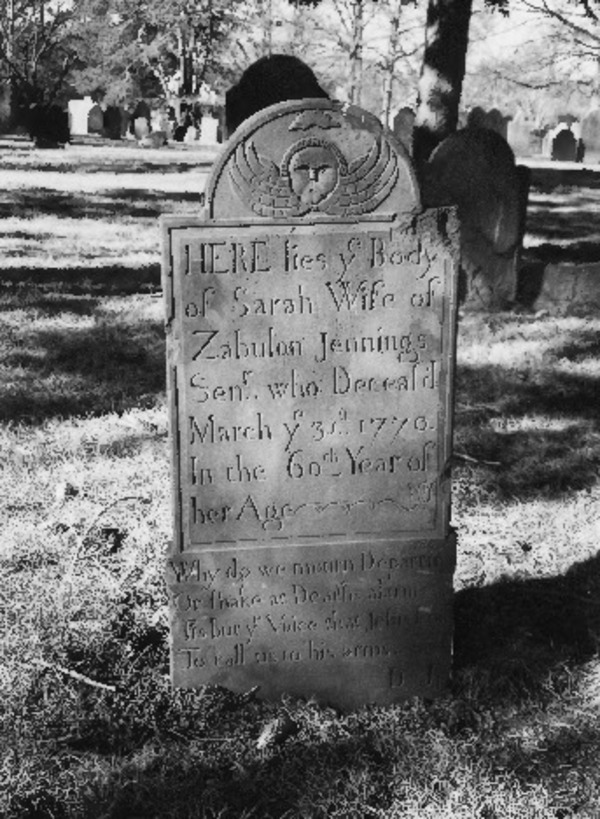 HERE lies yᵉ Body
of Sarah Wife of
Zabulon Jennings
Senʳ. who Deceas'd
March yᵉ 3ᵈ. 1770.
In the 60ᵗʰ Year of
her Age
Why do we mourn Departin
Or shake at Deaths alarms
tis but yᵉ Voice that Jesus
To call us to his arms.